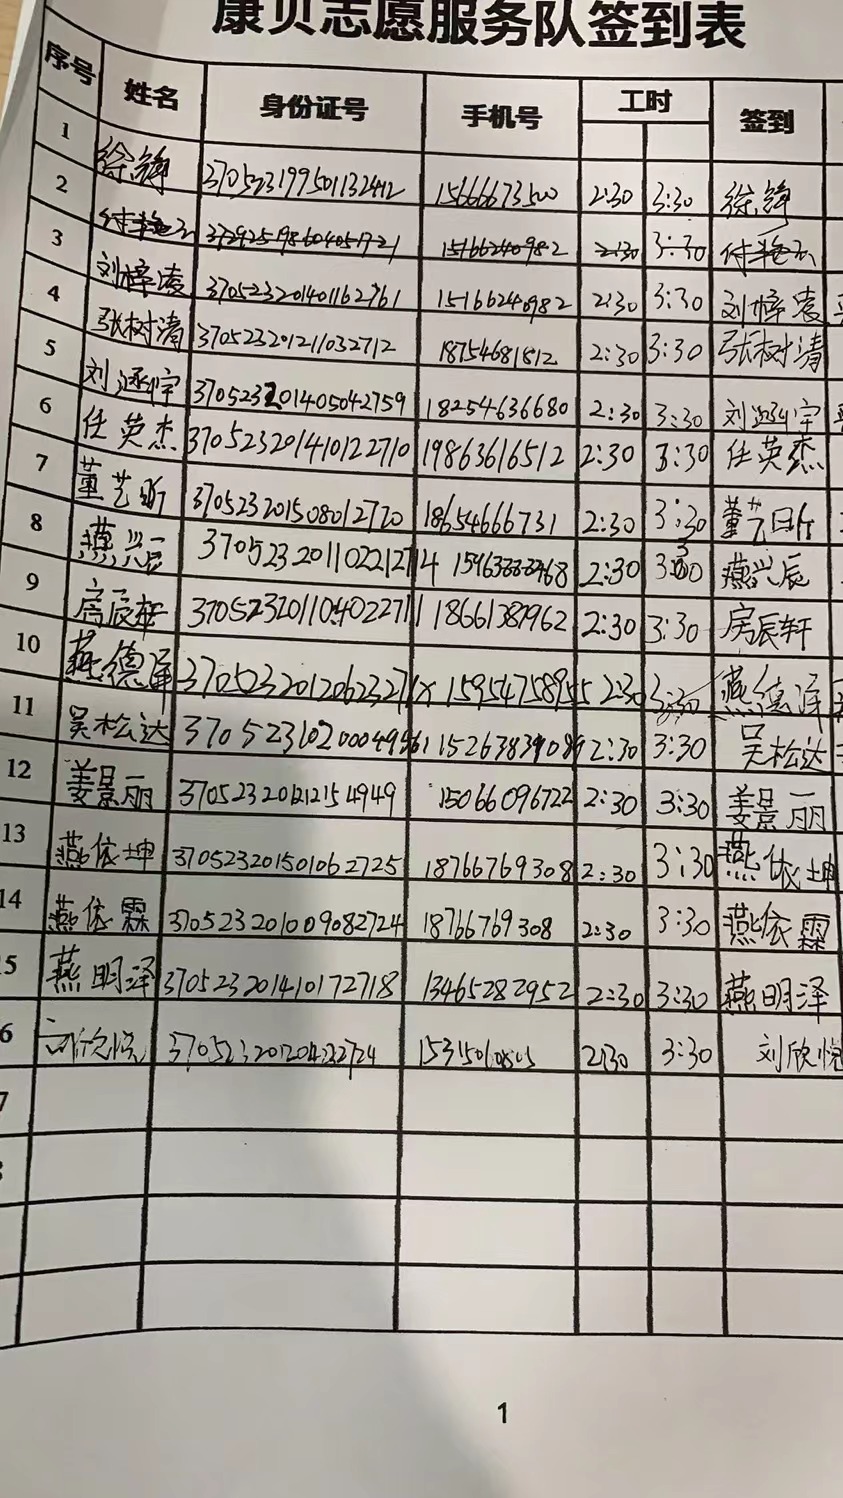 康贝志愿服务队签到表
序号 姓名 身份证号 手机号 工时 签到
1 徐铮 370523199501132412 15666673500 2:30 3:30 徐铮
2 付艳玉 372925198604051721 15166240982 2:30 3:30 付艳玉
3 刘梓凌 370523201401162761 15166240982 2:30 3:30 刘梓凌
4 张树清 370523201211032712 18754681812 2:30 3:30 张树清
5 刘涵宇 370523201405042759 18254636680 2:30 3:30 刘涵宇
6 任英杰 370523201410122710 19863616512 2:30 3:30 任英杰
7 董艺昕 370523201508012720 18654666731 2:30 3:30 董艺昕
8 燕兴辰 370523201102212714 2:30 3:30 燕兴辰
9 房辰轩 370523201104022711 18661387962 2:30 3:30 房辰轩
10 燕德泽 37052320120623271X 15954758955 2:30 3:30 燕德泽
11 吴松达 2:30 3:30 吴松达
12 姜景丽 15066096722 2:30 3:30 姜景丽
13 燕依坤 370523201501062725 18766769308 2:30 3:30 燕依坤
14 燕依霖 370523201009082724 18766769308 2:30 3:30 燕依霖
5 燕明泽 370523201410172718 13465282952 2:30 3:30 燕明泽
6 刘欣悦 2:30 3:30 刘欣悦
7
1